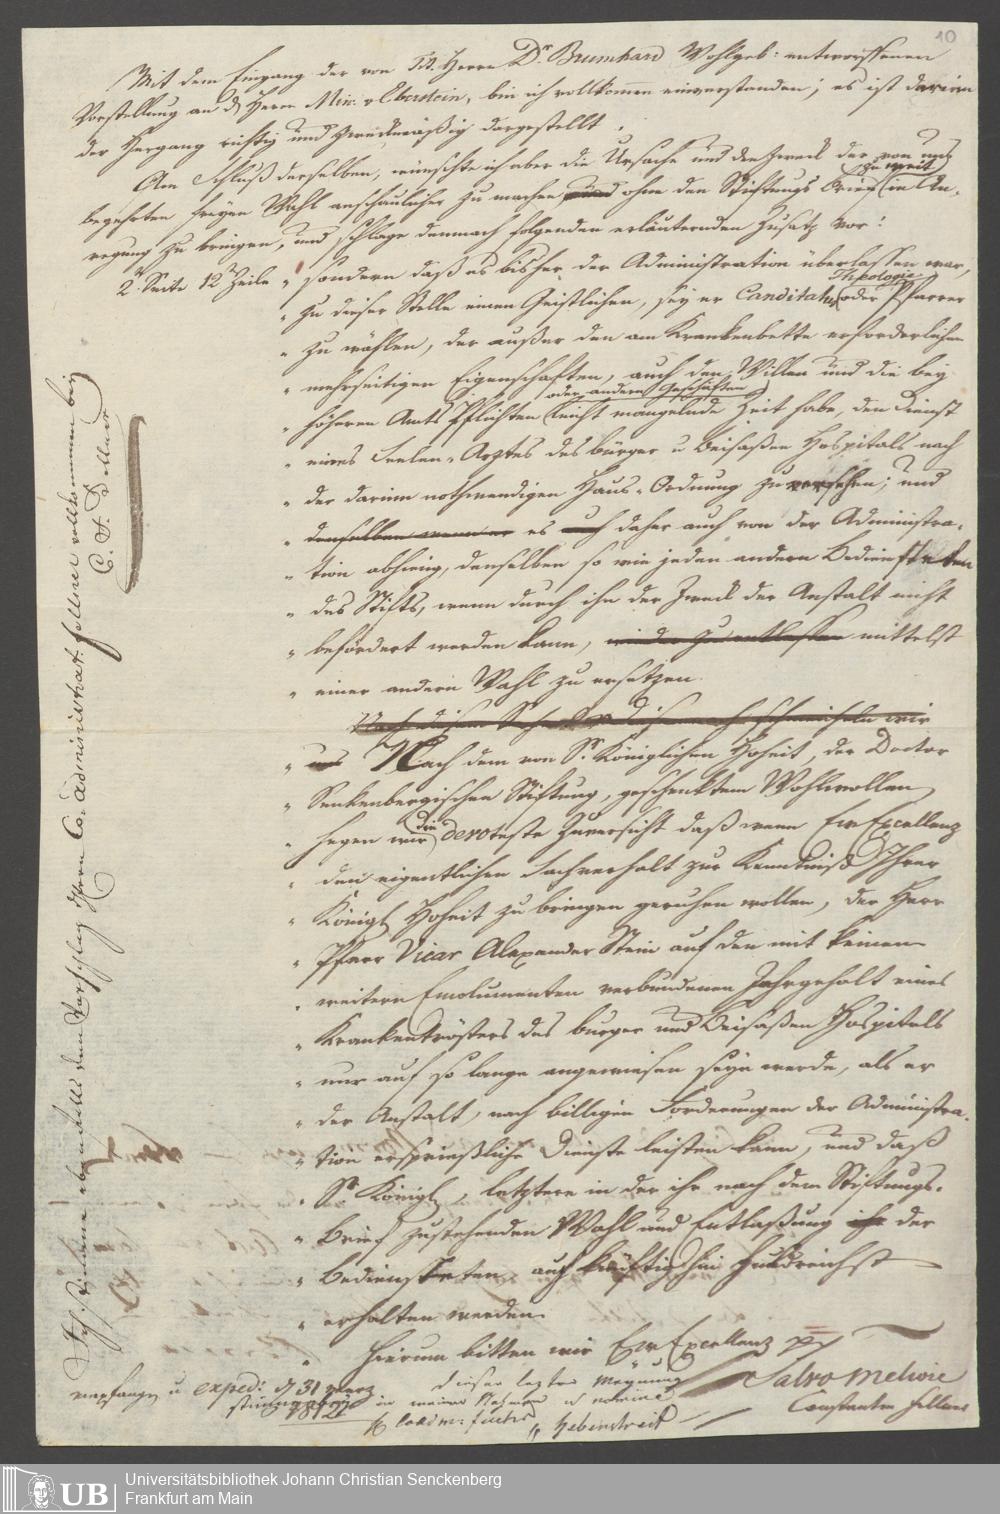 10
Mit dem Eingang der von Tit. Herrn Dr. Brumhard Wohlgeb: entworffenen
Vorstellung an d Herrn Min. v Eberstein, bin ich vollkommen einverstanden; es ist darinn
der Hergang richtig und zweckmäßig dargestellt.
Am Schluß derselben, wünschte ich aber die Ursache und den Zweck der von uns
begehrten freyen Wahl anschaulicher zu machen und ohne den Stiftungs Brief zu weit in An-
regung zu bringen, und schlage demnach folgenden erläuternden Zusatz vor:
2t. Seite 12t Zeile „ sondern daß es bisher der Administration überlassen war,
„ zu dieser Stelle einen Geistlichen, sey er Canditatus Theologie oder Pfarrer
„ zu wählen, der außer den am Krankenbette erforderlichen
„ mehrseitigen Eigenschaften, auch den Willen und die bey
„ höheren Amts Pflichten oder andern Geschäften leicht mangelnde Zeit habe, den Dienst
„ eines Seelen-Arztes des bürger u Beisaßen Hospitals nach
„ der darinn nothwendigen Haus-Ordnung zu versehen; und
„ denselben wenn er es auch daher auch von der Administra-
„ tion abhieng, denselben so wie jeden andern Bediensteten
„ des Stifts, wenn durch ihn der Zweck der Anstalt nicht
„ befördert werden kann, wieder zu entlassen mittelst
„ einer andern Wahl zu ersetzen.
schmeicheln wir
„ uns Nach dem von Sr. Königlichen Hoheit, der Doctor
„ Senkenbergischen Stiftung, geschenktem Wohlwollen
„ hegen wir die devoteste Zuversicht daß wenn Ew Excellenz
„ den eigentlichen Sachverhalt zur Kenntniß Ihrer
„ Königl. Hoheit zu bringen geruhen wollen, der Herr
„ Pfarr Vicar Alexander Stein auf den mit keinen
„ weitern Emolumenten verbundenen Jahrgehalt eines
„ Krankentrösters des burger und Beisaßen Hospitals
„ nur auf so lange angewiesen seyn werde, als er
„ der Anstalt, nach billigen Forderungen der Administra-
„ tion ersprießliche Dienste leisten kann, und daß
„ Sr. Königl., letztere in der ihr nach dem Stiftungs-
„ Brief zustehenden Wahl und Entlaßung ihr der
„ Bediensteten auch künftighin huldreichst
„ erhalten werden.
„ Hierum bitten wir Ew Excellenz pp
Salvo meliore
Constantin Fellner
dieser letzten Meynung
in meinem Nahmen u nomine
H. Coadm: Fuchs
Hebenstreit
empfangen u exped: d 31 merz
1812
Ich stimme ebenfalls dem Vorschlag Herrn Co-administrat. Fellner vollkommen bei
Universitätsbibliothek Johann Christian Senckenberg
Frankfurt am Main
UB